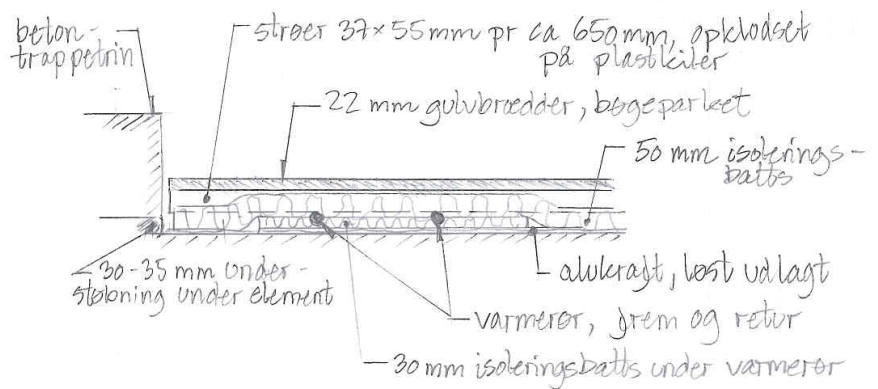 beton-
trappetrin
strøer 37×55 mm pr ca 650 mm, opklodset
på plastkiler
22 mm gulvbrædder, bøgeparket
50 mm isolerings-
batts
30-35 mm under-
støbning under element
alukraft, løst udlagt
varmerør, frem og retur
30 mm isoleringsbatts under varmerør